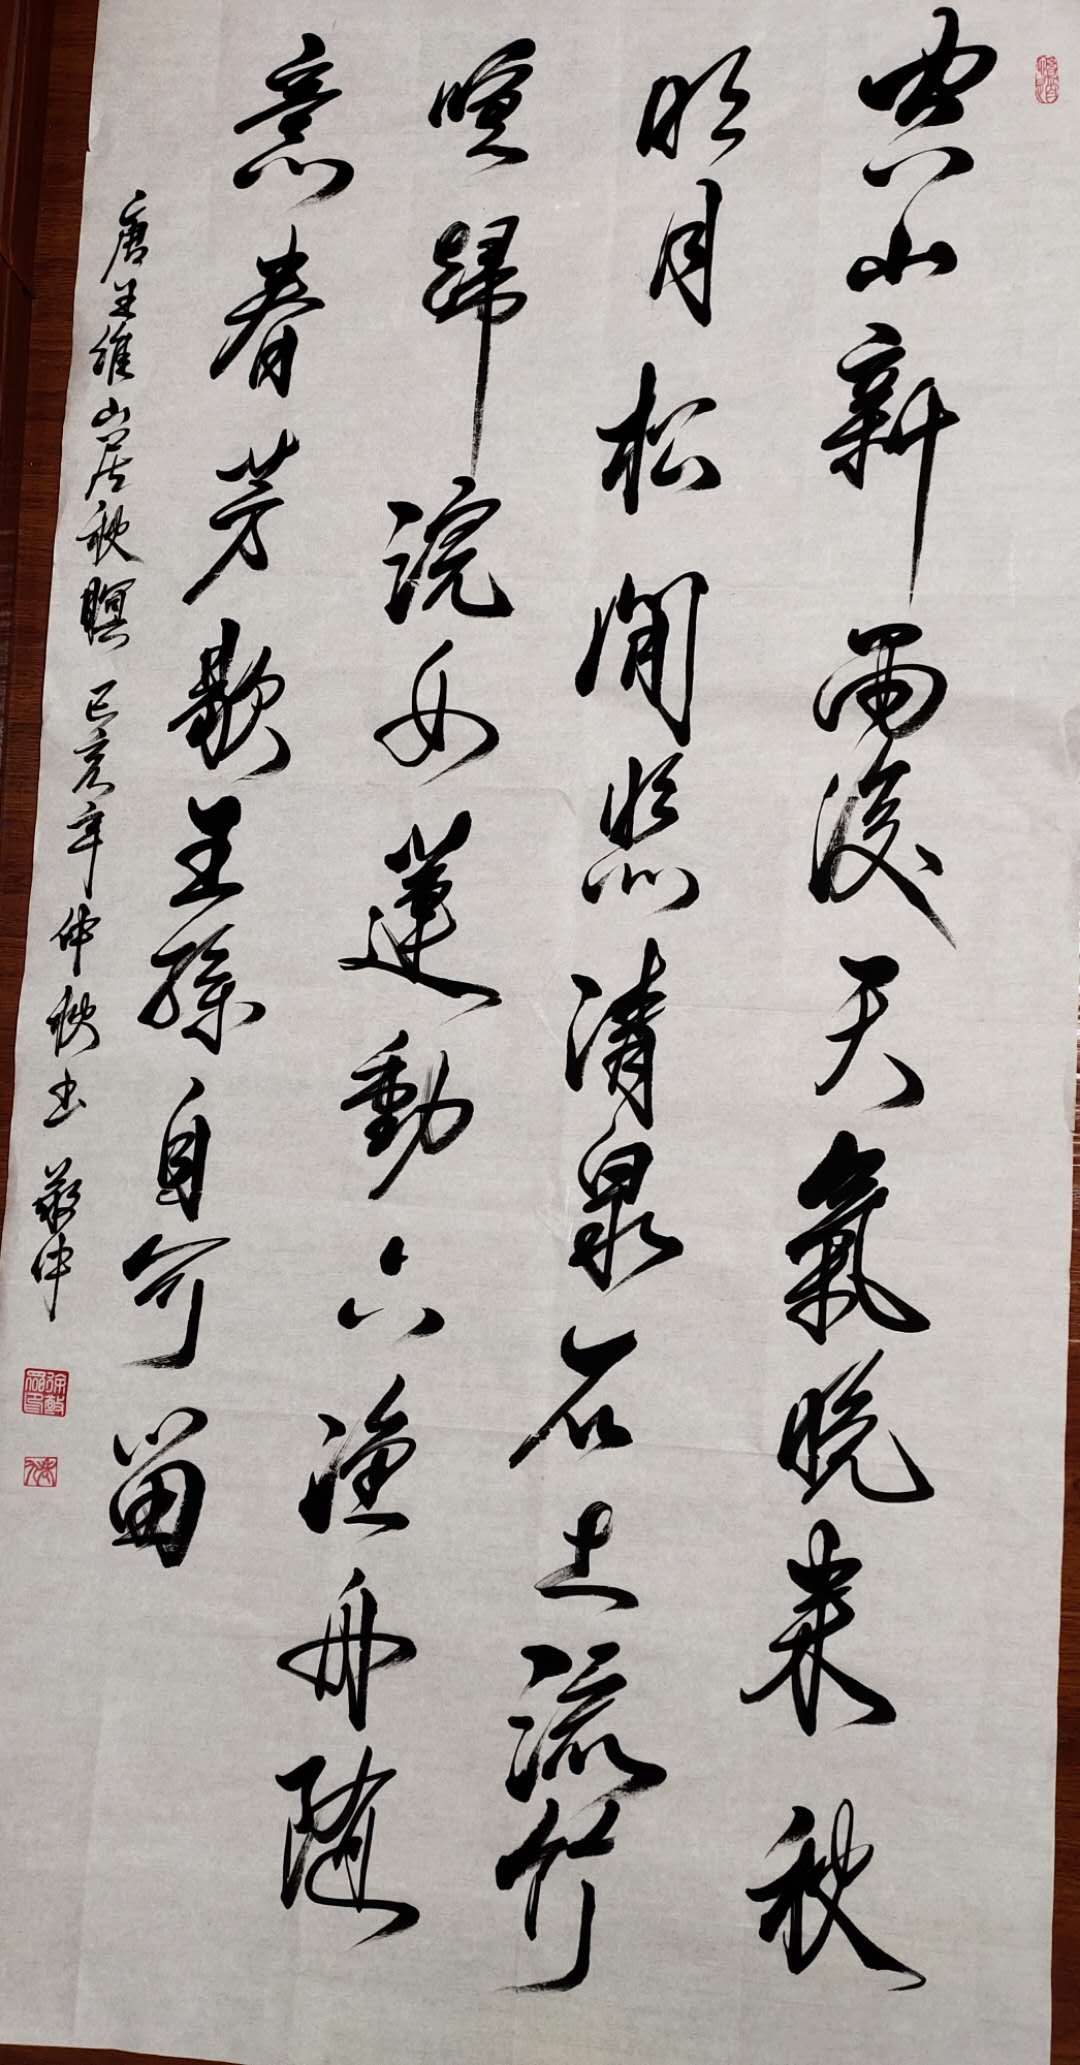 空山新雨後天氣晚来秋
明月松間照清泉石上流竹
喧歸浣女蓮動下漁舟隨
意春芳歇王孫自可留
唐王維山居秋暝 己亥年仲秋书 敬中